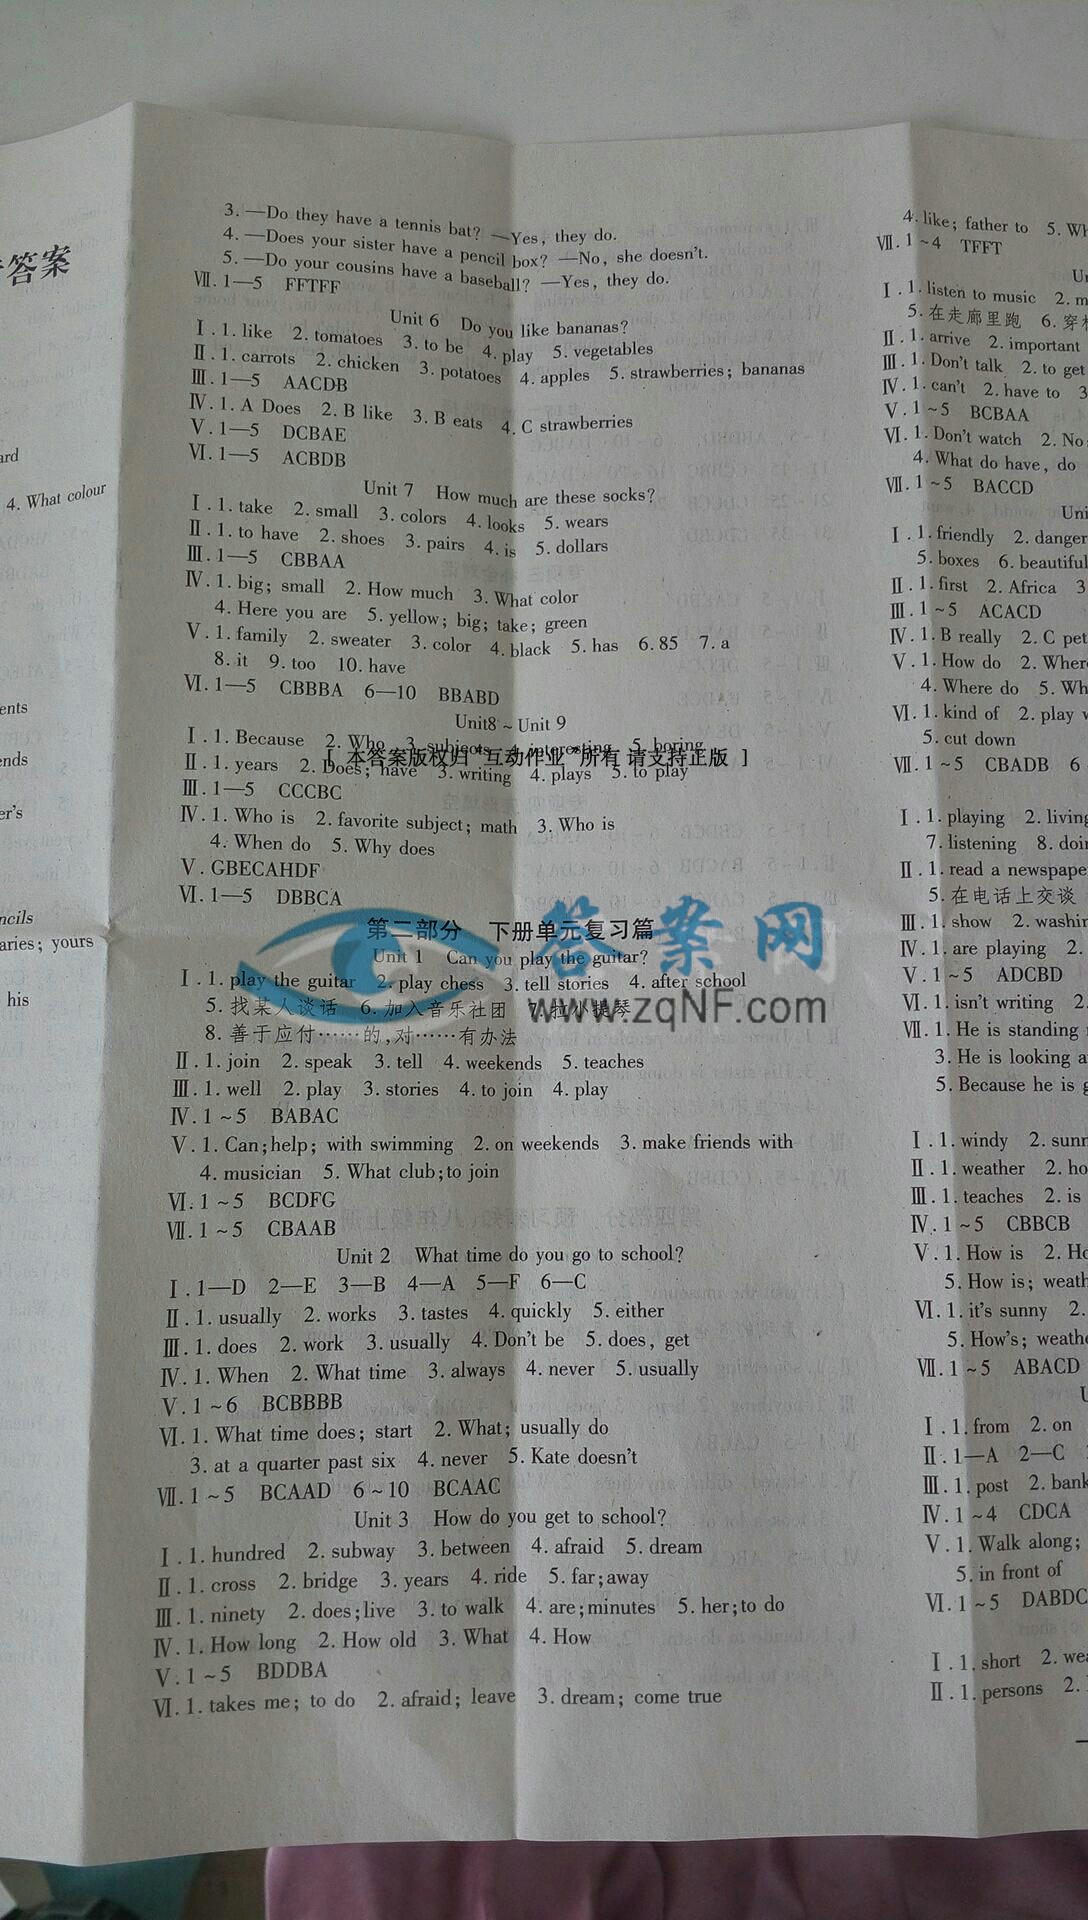 答案
ard
4. What colour
ents
ends
er's
ncils
aries; yours
his
3. —Do they have a tennis bat? —Yes, they do.
4. —Does your sister have a pencil box? —No, she doesn't.
5. —Do your cousins have a baseball? —Yes, they do.
Ⅶ. 1—5 FFTFF
Unit 6 Do you like bananas?
Ⅰ. 1. like 2. tomatoes 3. to be 4. play 5. vegetables
Ⅱ. 1. carrots 2. chicken 3. potatoes 4. apples 5. strawberries; bananas
Ⅲ. 1—5 AACDB
Ⅳ. 1. A Does 2. B like 3. B eats 4. C strawberries
Ⅴ. 1—5 DCBAE
Ⅵ. 1—5 ACBDB
Unit 7 How much are these socks?
Ⅰ. 1. take 2. small 3. colors 4. looks 5. wears
Ⅱ. 1. to have 2. shoes 3. pairs 4. is 5. dollars
Ⅲ. 1—5 CBBAA
Ⅳ. 1. big; small 2. How much 3. What color
4. Here you are 5. yellow; big; take; green
Ⅴ. 1. family 2. sweater 3. color 4. black 5. has 6. 85 7. a
8. it 9. too 10. have
Ⅵ. 1—5 CBBBA 6—10 BBABD
Unit8 ~ Unit 9
Ⅰ. 1. Because 2. Who 3. subjects 4. interesting 5. boring
[ 本答案版权归“互动作业”所有 请支持正版 ]
Ⅱ. 1. years 2. Does; have 3. writing 4. plays 5. to play
Ⅲ. 1—5 CCCBC
Ⅳ. 1. Who is 2. favorite subject; math 3. Who is
4. When do 5. Why does
Ⅴ. GBECAHDF
Ⅵ. 1—5 DBBCA
第二部分 下册单元复习篇
答案网
www.zqNF.com
Unit 1 Can you play the guitar?
Ⅰ. 1. play the guitar 2. play chess 3. tell stories 4. after school
5. 找某人谈话 6. 加入音乐社团 7. 拉小提琴
8. 善于应付……的,对……有办法
Ⅱ. 1. join 2. speak 3. tell 4. weekends 5. teaches
Ⅲ. 1. well 2. play 3. stories 4. to join 4. play
Ⅳ. 1 ~ 5 BABAC
Ⅴ. 1. Can;help; with swimming 2. on weekends 3. make friends with
4. musician 5. What club;to join
Ⅵ. 1 ~ 5 BCDFG
Ⅶ. 1 ~ 5 CBAAB
Unit 2 What time do you go to school?
Ⅰ. 1—D 2—E 3—B 4—A 5—F 6—C
Ⅱ. 1. usually 2. works 3. tastes 4. quickly 5. either
Ⅲ. 1. does 2. work 3. usually 4. Don't be 5. does, get
Ⅳ. 1. When 2. What time 3. always 4. never 5. usually
Ⅴ. 1 ~ 6 BCBBBB
Ⅵ. 1. What time does; start 2. What; usually do
3. at a quarter past six 4. never 5. Kate doesn't
Ⅶ. 1 ~ 5 BCAAD 6 ~ 10 BCAAC
Unit 3 How do you get to school?
Ⅰ. 1. hundred 2. subway 3. between 4. afraid 5. dream
Ⅱ. 1. cross 2. bridge 3. years 4. ride 5. far;away
Ⅲ. 1. ninety 2. does;live 3. to walk 4. are;minutes 5. her;to do
Ⅳ. 1. How long 2. How old 3. What 4. How
Ⅴ. 1 ~ 5 BDDBA
Ⅵ. 1. takes me; to do 2. afraid; leave 3. dream; come true
4. like; father to 5. Wh
Ⅶ. 1 ~ 4 TFFT
Un
Ⅰ. 1. listen to music 2. m
5. 在走廊里跑 6. 穿
Ⅱ. 1. arrive 2. important
Ⅲ. 1. Don't talk 2. to get
Ⅳ. 1. can't 2. have to 3
Ⅴ. 1 ~ 5 BCBAA
Ⅵ. 1. Don't watch 2. No
4. What do have, do
Ⅶ. 1 ~ 5 BACCD
Unit
Ⅰ. 1. friendly 2. danger
5. boxes 6. beautiful
Ⅱ. 1. first 2. Africa 3
Ⅲ. 1 ~ 5 ACACD
Ⅳ. 1. B really 2. C pet
Ⅴ. 1. How do 2. Where
4. Where do 5. Wh
Ⅵ. 1. kind of 2. play w
5. cut down
Ⅶ. 1 ~ 5 CBADB 6
Ⅰ. 1. playing 2. living
7. listening 8. doin
Ⅱ. 1. read a newspape
5. 在电话上交谈
Ⅲ. 1. show 2. washin
Ⅳ. 1. are playing 2.
Ⅴ. 1 ~ 5 ADCBD
Ⅵ. 1. isn't writing 2.
Ⅶ. 1. He is standing
3. He is looking a
5. Because he is g
Ⅰ. 1. windy 2. sunn
Ⅱ. 1. weather 2. ho
Ⅲ. 1. teaches 2. is
Ⅳ. 1 ~ 5 CBBCB
Ⅴ. 1. How is 2. Ho
5. How is; weath
Ⅵ. 1. it's sunny 2.
5. How's; weathe
Ⅶ. 1 ~ 5 ABACD
U
Ⅰ. 1. from 2. on
Ⅱ. 1—A 2—C
Ⅲ. 1. post 2. bank
Ⅳ. 1 ~ 4 CDCA
Ⅴ. 1. Walk along;
5. in front of
Ⅵ. 1 ~ 5 DABDC
Ⅰ. 1. short 2. wea
Ⅱ. 1. persons 2.